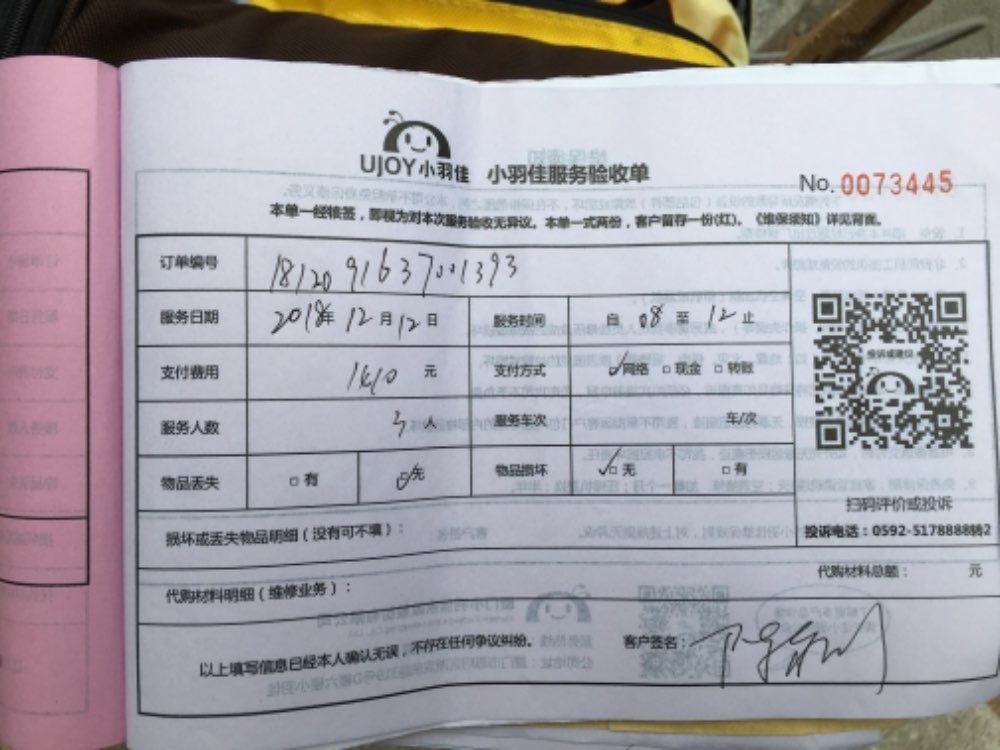 UJOY小羽佳 小羽佳服务验收单
No. 0073445
本单一经核签，即视为对本次服务验收无异议。本单一式两份，客户留存一份(红)、《维保须知》详见背面。
订单编号 1812091637001393
服务日期 2018年12月12日 服务时间 自 08 至 12 止
支付费用 1410 元 支付方式 ☑网络 □现金 □转账
服务人数 3人 服务车次 车/次
物品丢失 □有 ☑无 物品损坏 ☑无 □有
扫码评价或投诉
损坏或丢失物品明细（没有可不填）：
投诉电话：0592-5178888转2
代购材料明细（维修业务）：
代购材料总额： 元
以上填写信息已经本人确认无误，不存在任何争议纠纷。
客户签名：